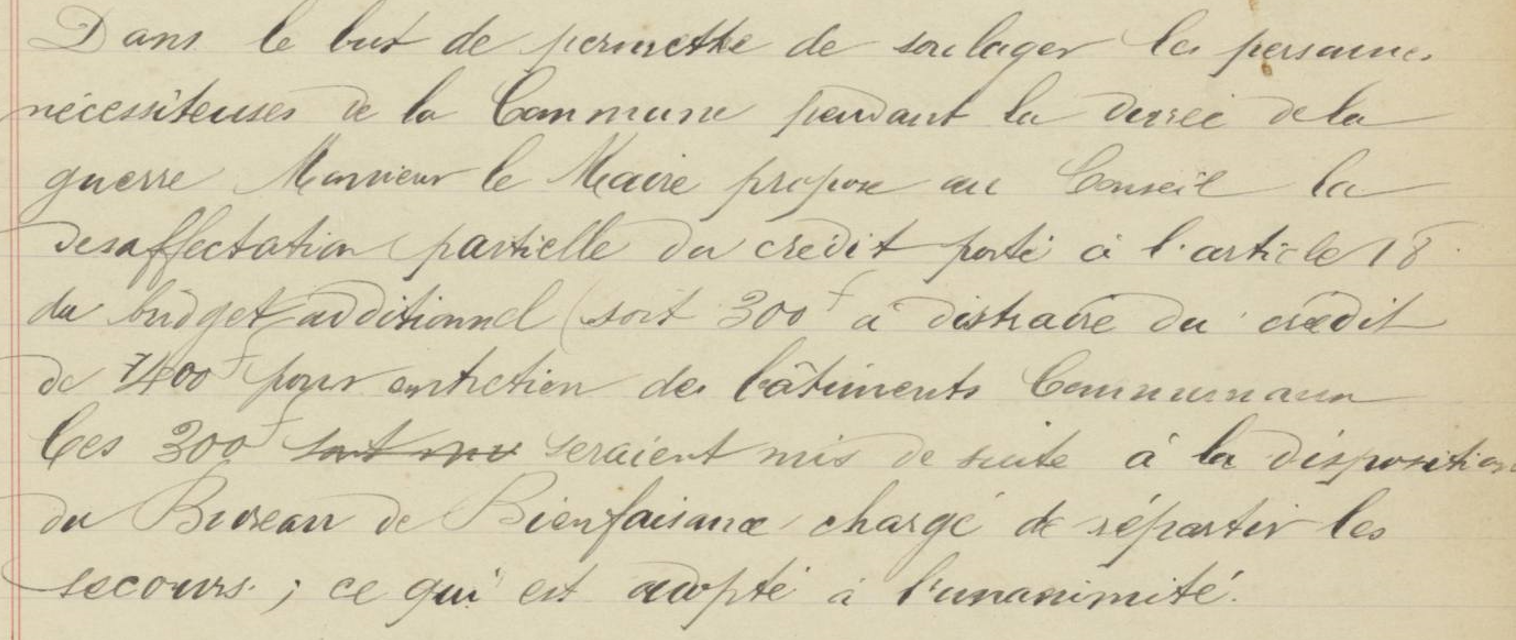 Dans le but de permettre de soulager les personnes
nécessiteuses de la Commune pendant la durée de la
guerre Monsieur le Maire propose au Conseil la
desaffectation partielle du crédit porté à l'article 18
du budget additionnel (soit 300f à distraire du crédit
de 7400f pour entretien des bâtiments Communaux
Ces 300f sont mis seraient mis de suite à la disposition
du Bureau de Bienfaisance chargé de répartir les
secours ; ce qui est adopté à l'unanimité.